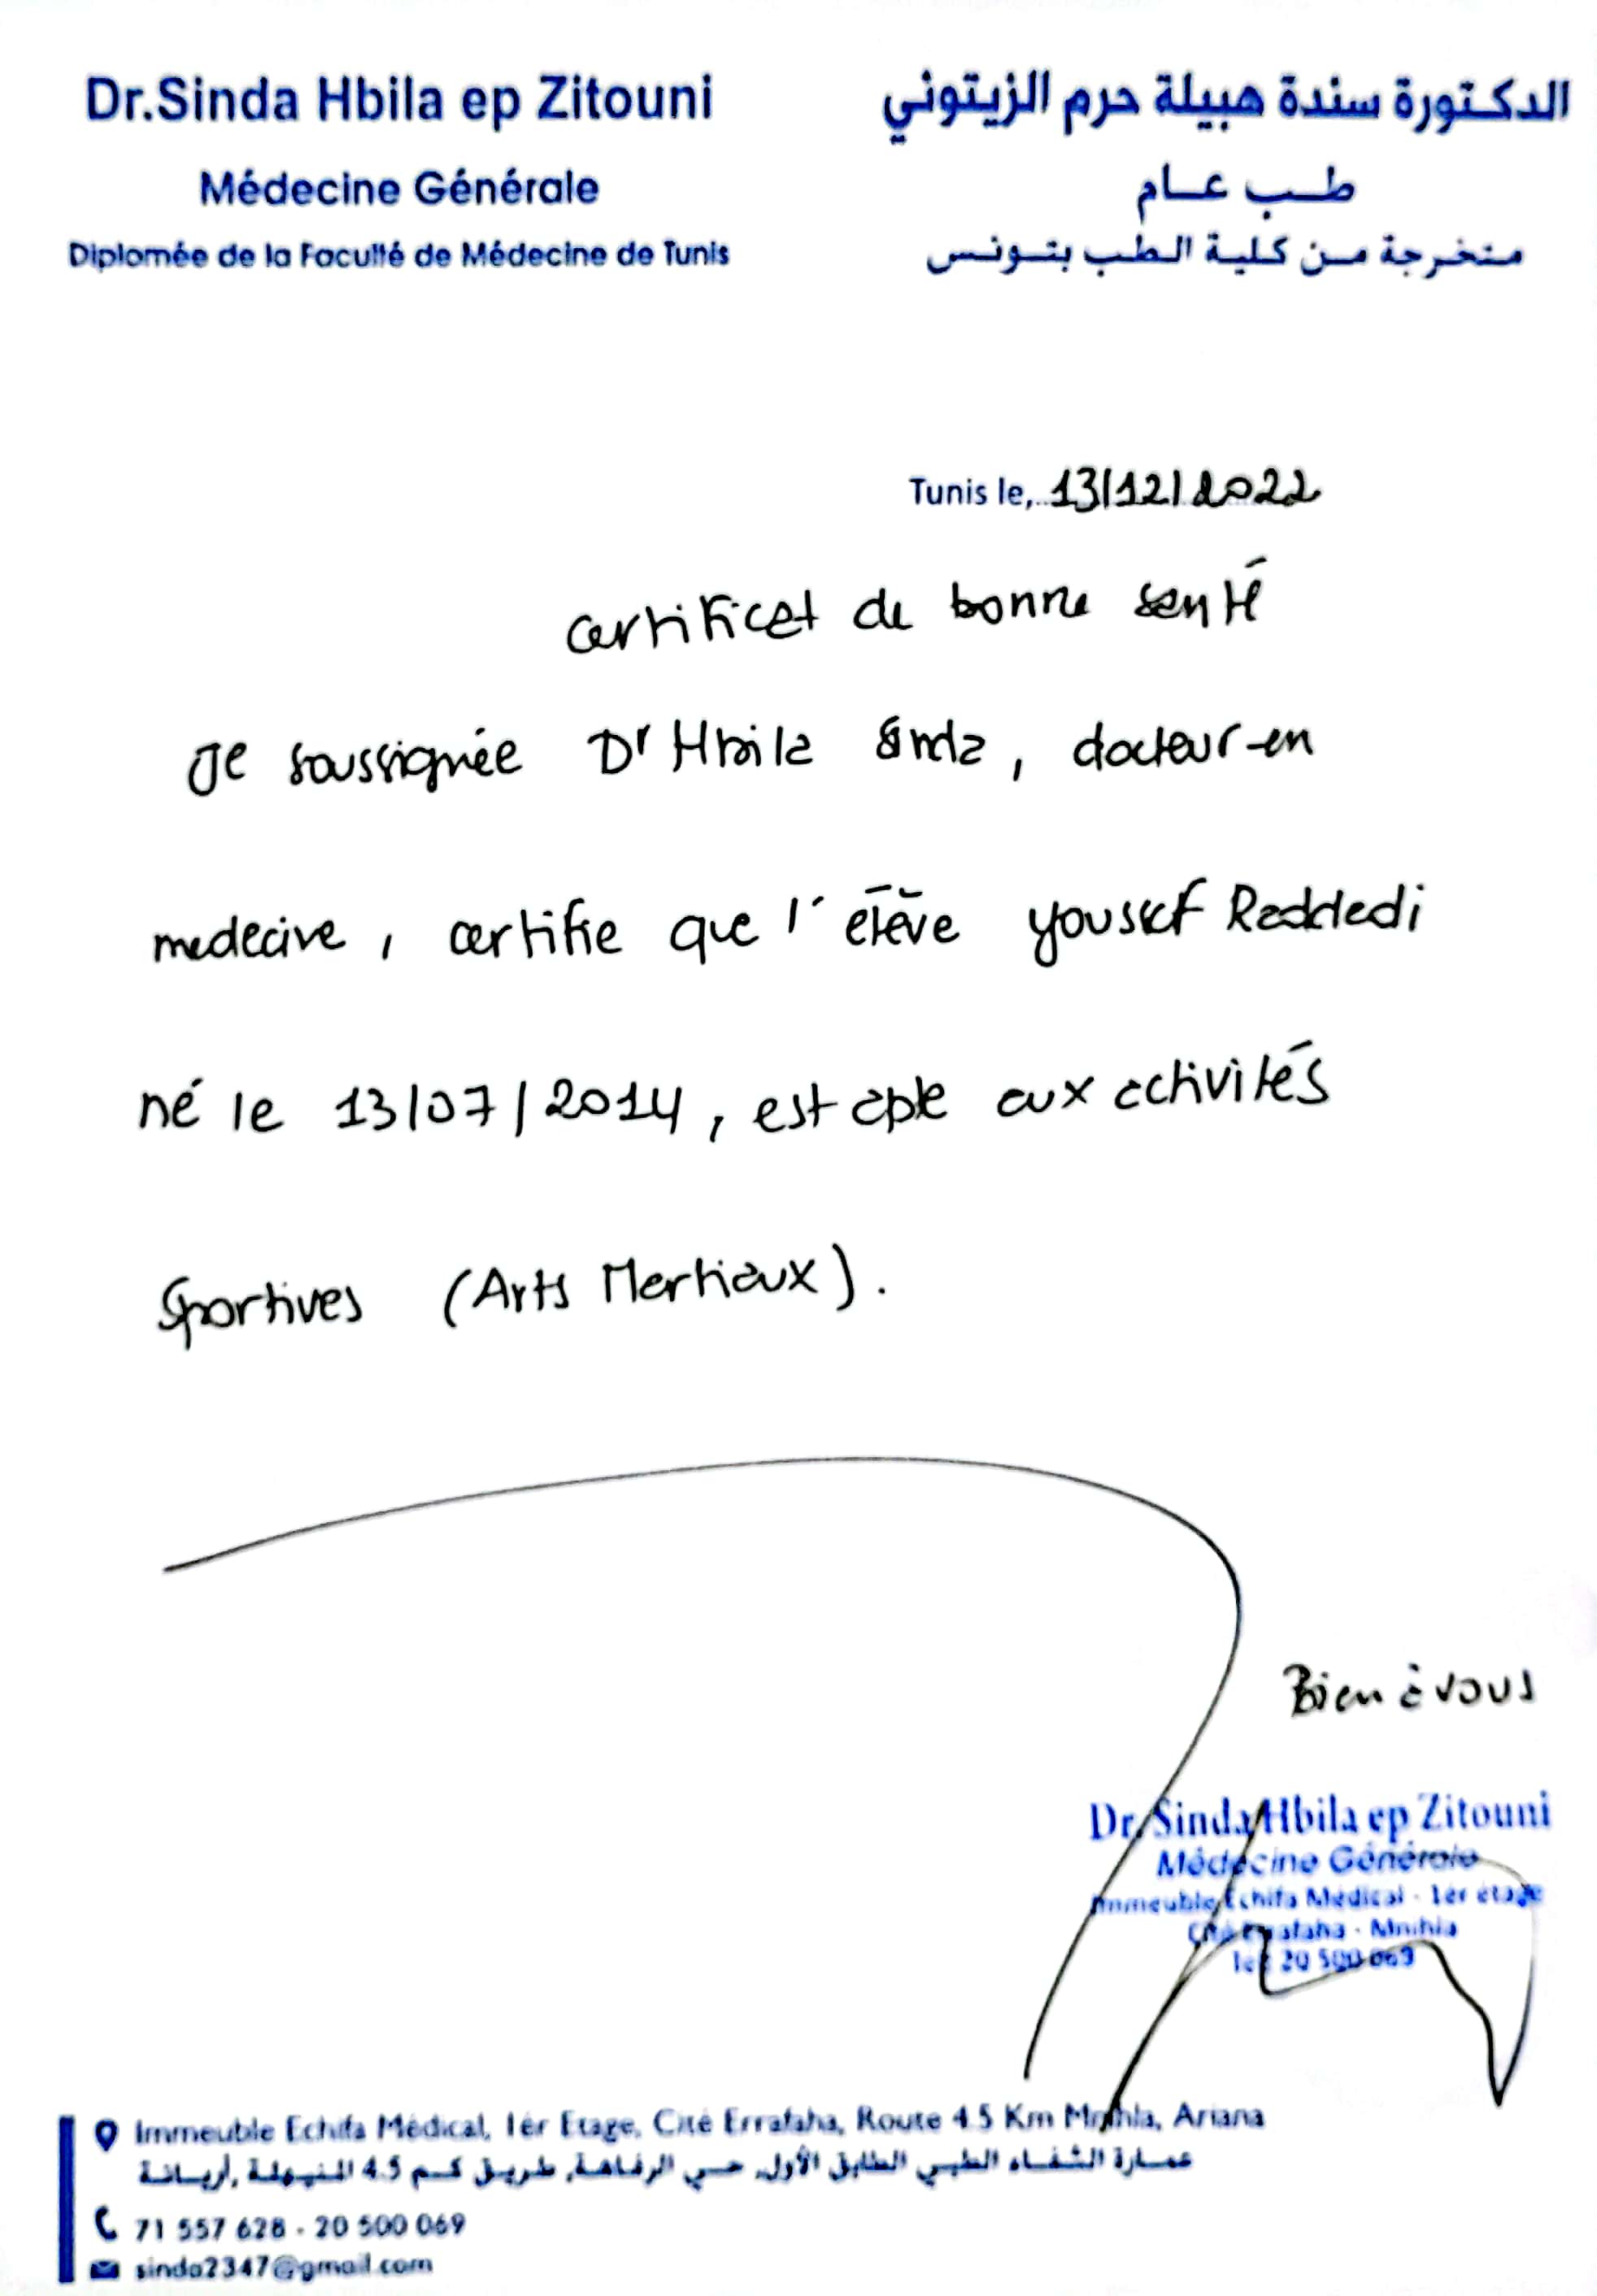 Dr.Sinda Hbila ep Zitouni
Médecine Générale
Diplomée de la Faculté de Médecine de Tunis
الدكتورة سندة هبيلة حرم الزيتوني
طب عام
متخرجة من كلية الطب بتونس
Tunis le, 13/12/2022
certificat de bonne santé
Je soussignée Dr Hbila Sinda, docteur en
medecine, certifie que l'élève youssef Raddedi
né le 13/07/2014, est apte aux activités
Sportives (Arts Martiaux).
Bien à vous
Dr. Sinda Hbila ep Zitouni
Médecine Générale
Immeuble Echifa Médical - 1ér étage
Cité Errafaha - Mnihla
Tel: 20 500 069
Immeuble Echifa Médical, 1ér Etage, Cité Errafaha, Route 4.5 Km Mnihla, Ariana
عمارة الشفاء الطبي الطابق الأول، حي الرفاهة، طريق كم 4.5 المنيهلة، أريانة
71 557 628 - 20 500 069
sinda2347@gmail.com